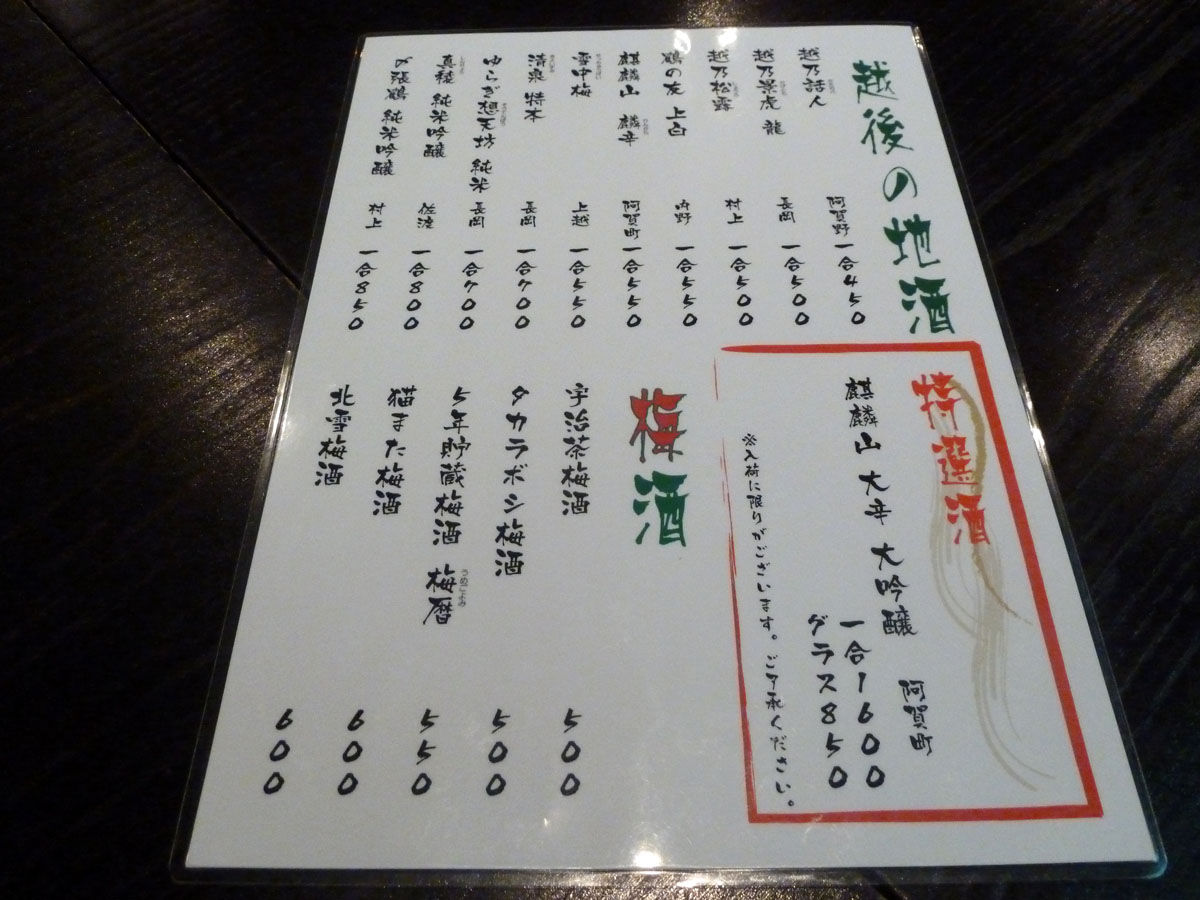 越後の地酒
越乃話人 阿賀野 一合450
越乃景虎 龍 長岡 一合500
越乃松露 村上 一合500
鶴の友 上白 内野 一合550
麒麟山 麟辛 阿賀町 一合550
雪中梅 上越 一合550
清泉 特本 長岡 一合700
ゆらぎ想天坊 純米 長岡 一合700
真稜 純米吟醸 佐渡 一合800
〆張鶴 純米吟醸 村上 一合850
特選酒
麒麟山 大辛 大吟醸 阿賀町
一合1600
グラス850
※入荷に限りがございます。ご了承ください。
梅酒
宇治茶梅酒 500
タカラボシ梅酒 500
5年貯蔵梅酒 梅暦 550
うめごよみ
猫また梅酒 600
北雪梅酒 600